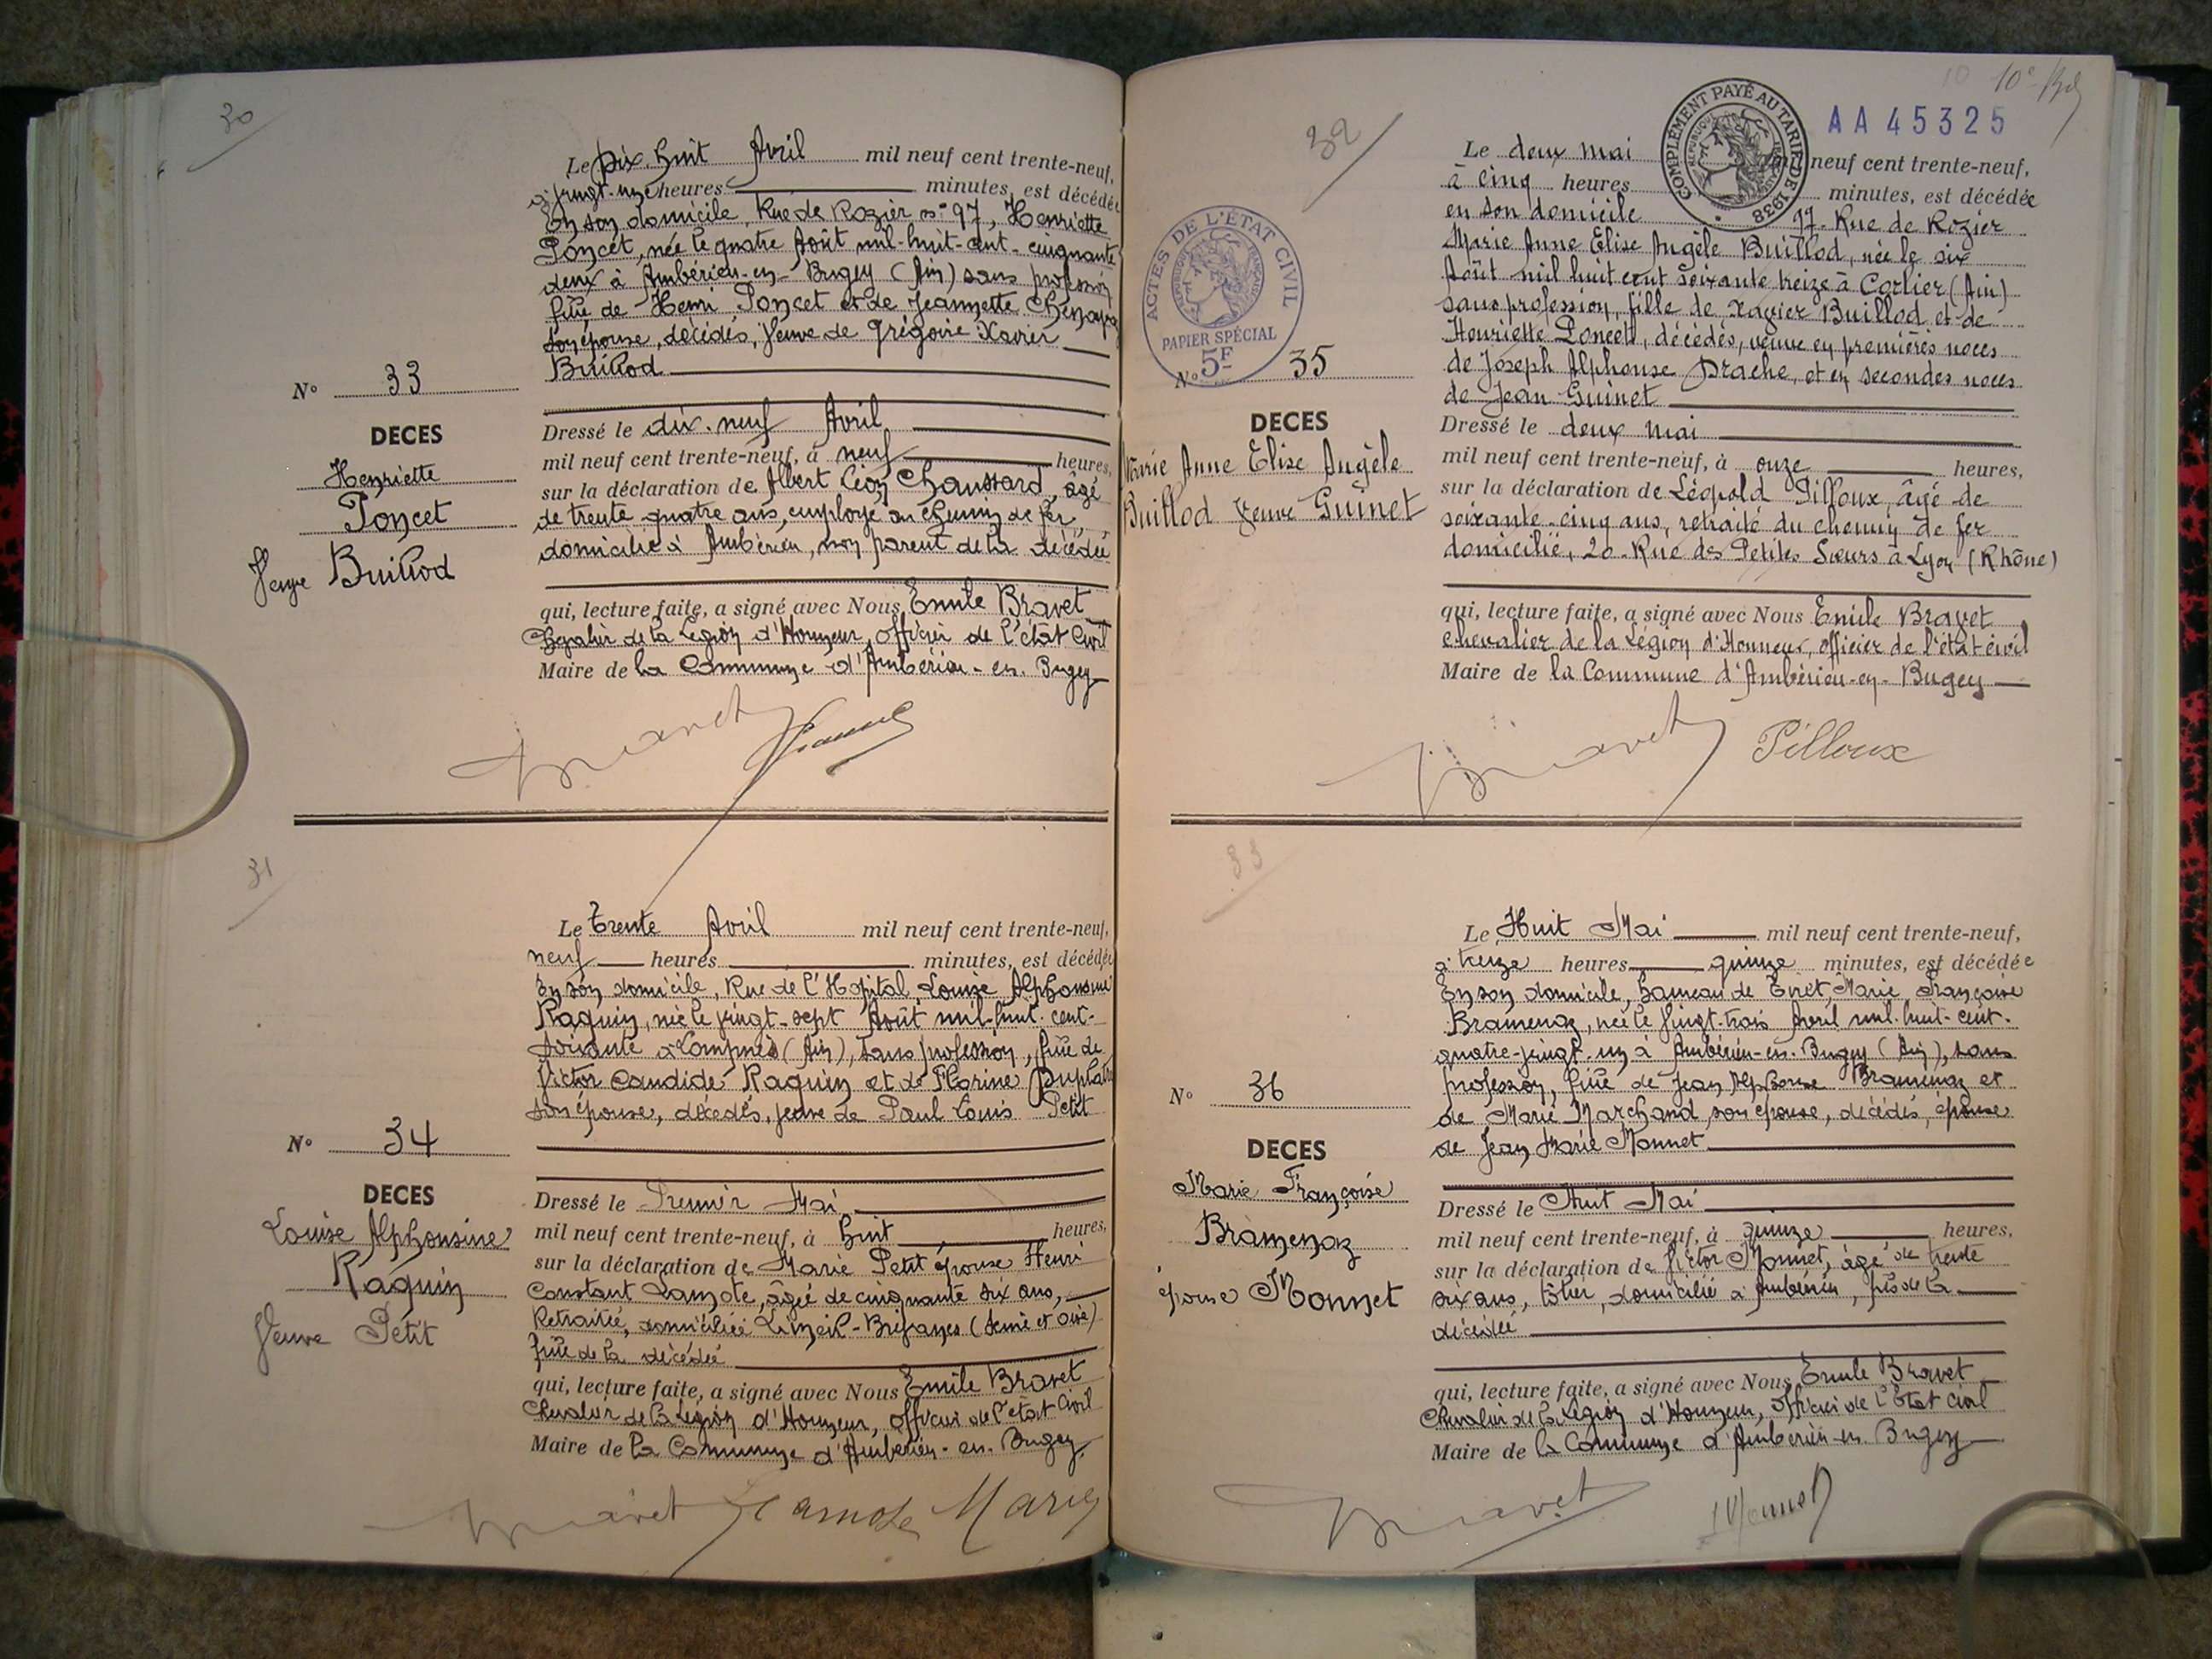 30
Le Dix-huit Avril mil neuf cent trente-neuf,
à vingt-une heures minutes, est décédée
En son domicile, Rue de Rozier n° 97, Henriette
Poncet, née le quatre Août mil-huit-cent-cinquante
deux à Ambérieu-en-Bugey (Ain) sans profession
fille de Henri Poncet et de Jeannette
son épouse, décédés, Veuve de Grégoire Xavier
Buillod
N° 33
DECES
Henriette
Poncet
Veuve Buillod
Dressé le dix-neuf Avril
mil neuf cent trente-neuf, à neuf heures,
sur la déclaration de Albert Léon Chaussard, âgé
de trente quatre ans, employé au chemin de fer,
domicilié à Ambérieu, non parent de la décédée
qui, lecture faite, a signé avec Nous, Emile Bravet
Chevalier de la Légion d'Honneur, officier de l'état Civil
Maire de la Commune d'Ambérieu-en-Bugey
Bravet
31
Le Trente Avril mil neuf cent trente-neuf,
neuf heures minutes, est décédée
En son domicile, Rue de l'Hôpital, Louise Alphonsine
Raquin, née le vingt-sept Août mil-huit-cent-
soixante à Lompnes (Ain), sans profession, fille de
Victor Candide Raquin et de Florine
son épouse, décédés, veuve de Paul Louis Petit
N° 34
DECES
Louise Alphonsine
Raquin
Veuve Petit
Dressé le Premier Mai
mil neuf cent trente-neuf, à huit heures,
sur la déclaration de Marie Petit épouse Henri
Constant Lamote, âgée de cinquante six ans,
Retraitée, domiciliée Limeil-Brévanes (Seine et Oise)
fille de la décédée
qui, lecture faite, a signé avec Nous Emile Bravet
Chevalier de la Légion d'Honneur, officier de l'état Civil
Maire de la Commune d'Ambérieu-en-Bugey
Bravet Lamote Marie
10e
32
COMPLÉMENT PAYÉ AU TARIF DE 1938
AA 45325
Le deux mai neuf cent trente-neuf,
à cinq heures minutes, est décédée
en son domicile 97-Rue de Rozier
Marie Anne Elise Angèle Buillod, née le six
Août mil huit cent soixante treize à Corlier (Ain)
sans profession, fille de Xavier Buillod et de
Henriette Poncet, décédés, veuve en premières noces
de Joseph Alphonse Drache, et en secondes noces
de Jean Guinet
ACTES DE L'ÉTAT CIVIL
PAPIER SPÉCIAL
5F
N° 35
DECES
Marie Anne Elise Angèle
Buillod Veuve Guinet
Dressé le deux mai
mil neuf cent trente-neuf, à onze heures,
sur la déclaration de Léopold Pilloux, âgé de
soixante-cinq ans, retraité du chemin de fer
domicilié, 20-Rue des Petites Sœurs à Lyon (Rhône)
qui, lecture faite, a signé avec Nous Emile Bravet
chevalier de la Légion d'Honneur, officier de l'état civil
Maire de la Commune d'Ambérieu-en-Bugey
Bravet Pilloux
33
Le Huit Mai mil neuf cent trente-neuf,
à treize heures quinze minutes, est décédée
En son domicile, hameau de Tiret, Marie Françoise
Bramenaz, née le Vingt-trois Avril mil-huit-cent-
quatre-vingt-un à Ambérieu-en-Bugey (Ain), sans
profession, fille de Jean Alphonse Bramenaz et
de Marie Marchand, son épouse, décédés, épouse
de Jean Marie Monnet
N° 36
DECES
Marie Françoise
Bramenaz
épouse Monnet
Dressé le Huit Mai
mil neuf cent trente-neuf, à quinze heures,
sur la déclaration de Victor Monnet, âgé de trente
six ans, tôlier, domicilié à Ambérieu, fils de la
décédée
qui, lecture faite, a signé avec Nous, Emile Bravet
Chevalier de la Légion d'Honneur, officier de l'Etat Civil
Maire de la Commune d'Ambérieu-en-Bugey
Bravet Monnet